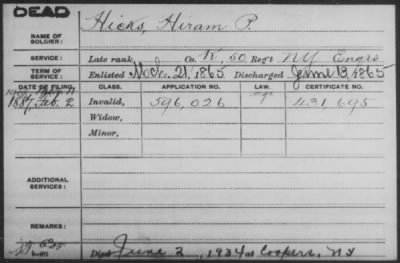 DEAD
Hicks, Hiram P.
NAME OF SOLDIER:
SERVICE: Late rank, Co. K, 50 Reg't NY Engrs
TERM OF SERVICE: Enlisted Mch. 21, 1865 Discharged June 13, 1865
DATE OF FILING. CLASS. APPLICATION NO. LAW. CERTIFICATE NO.
1887, Feb. 2 Invalid, 596,026 431 695
Widow,
Minor,
ADDITIONAL SERVICES:
REMARKS:
Died June 2, 1934 at Coopers, NY